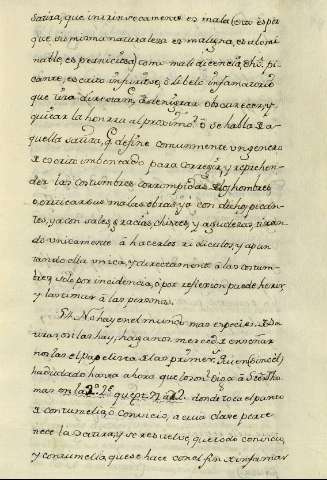 Satira, que intrinsecamente es mala (esto es por
que su misma naturaleza es maligna, es abomi
nable, es perniciosa) como maledicencia, dicho pi
cante, escrito injurioso, ò libelo infamatorio
que tira directam.te à denigrar obscurecer, y
quitar la honrra al proximo? ò se habla de a
quella satira, q̃ define comunmente un genero
de escrito imbentado para corregir, y reprehen
der las costumbres corrompidas de los hombres
ò criticar sus malas obras, yà con dichos pican
tes, ya con sales, gracias, chistes, y agudezas, tiran
do unicamente à hacerlos ridiculos, y apun
tando ella unica, y directamente à las costum
bres, solo por incidencia, ò por reflexion puede herir,
y lastimar à las personas.
No hay en el mundo mas especies de Sa
tiras, ò si las hay, haganos merced de enseñar
noslas el Pap elista de las primeras. Quien (sino el)
ha dudado hasta ahora que los m. Diga à Sto Tho
mas en la 2.ª 2.ª donde toca el punto
de contumelia, ò convicio, a cuia clase perte
nece la Satira, y se resuelve, que todo convicio,
y contumelia, que se hace con el fin de infamar